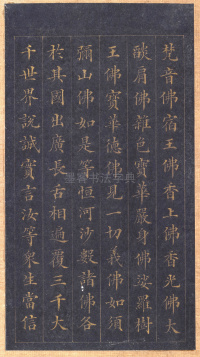 梵音佛宿王佛香上佛香光佛大
燄肩佛雜色寶華嚴身佛娑羅樹
王佛寶華德佛見一切義佛如須
彌山佛如是等恒河沙數諸佛各
於其國出廣長舌相遍覆三千大
千世界說誠實言汝等衆生當信